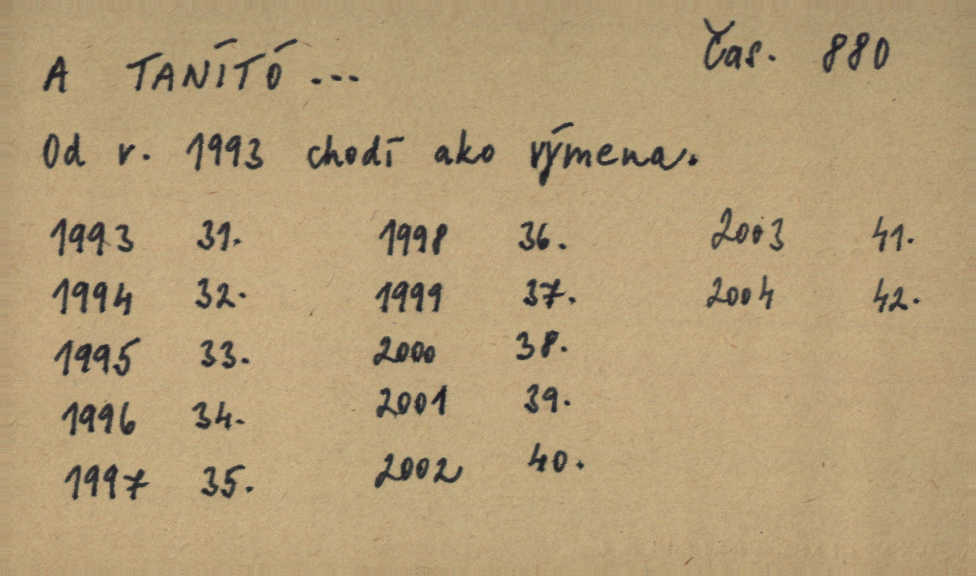 A TANÍTÓ... Čas. 880
Od r. 1993 chodí ako výmena.
1993 31. 1998 36. 2003 41.
1994 32. 1999 37. 2004 42.
1995 33. 2000 38.
1996 34. 2001 39.
1997 35. 2002 40.